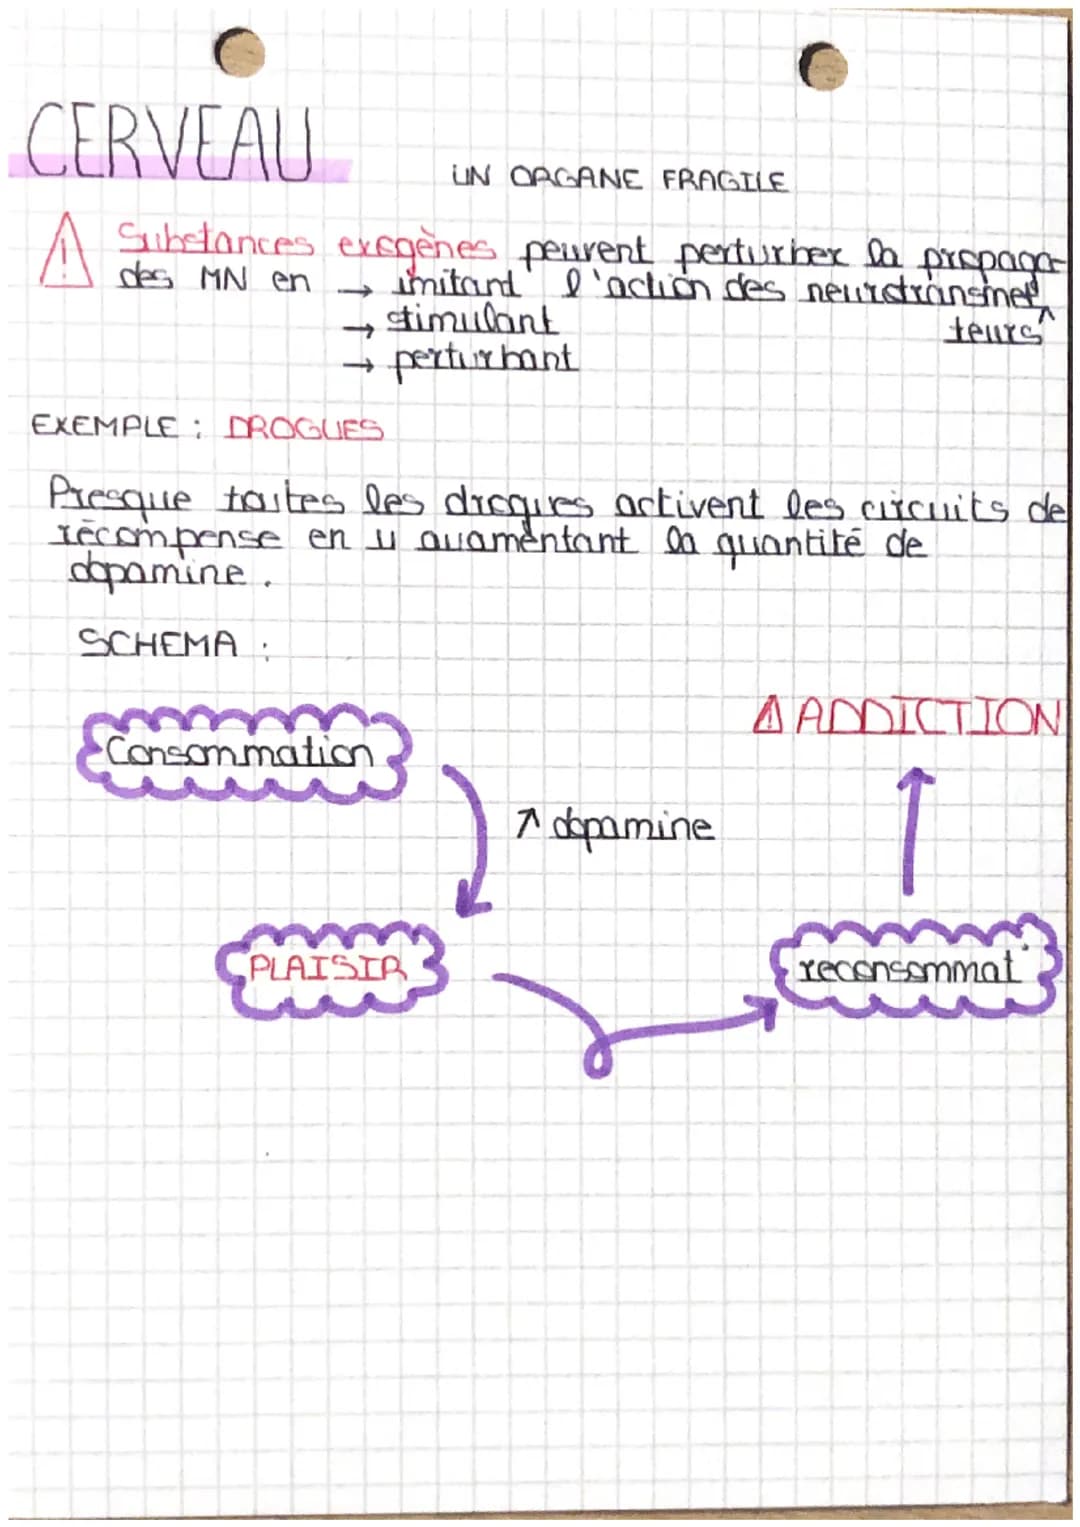 CERVEAU
UN ORGANE FRAGILE
⚠ Substances exogènes peuvent perturber la propaga-
des MN en → imitant l'action des neurotransmet
teurs
→ stimulant
→ perturbant
EXEMPLE : DROGUES
Presque toutes les drogues activent les circuits de
récompense en y augmentant la quantité de
dopamine.
SCHEMA :
⚠ ADDICTION
Consommation
↗ dopamine
PLAISIR
reconsommat°